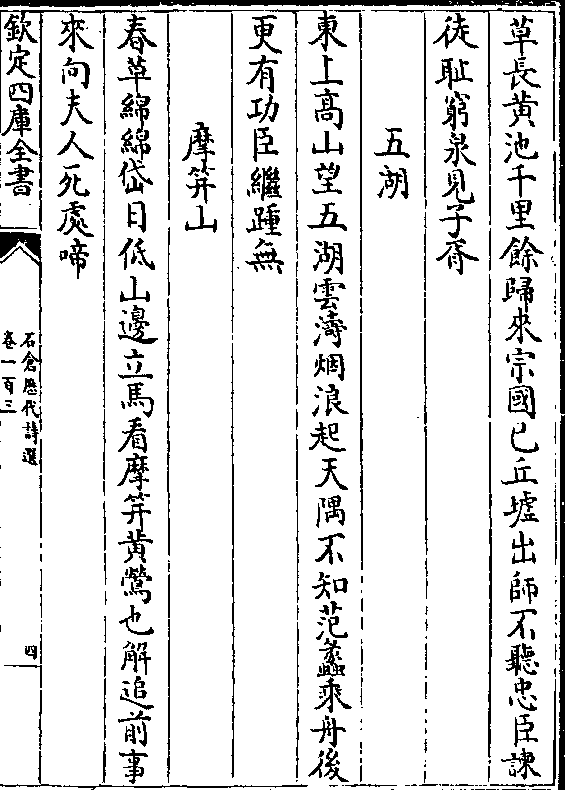 草長黄池千里餘歸來宗國已丘墟出師不聽忠臣諫
徒耻窮泉見子胥
五湖
東上髙山望五湖雲濤烟浪起天隅不知范蠡乘舟後
更有功臣繼踵無
摩笄山
春草綿綿岱日低山邊立馬看摩笄黄鶯也解追前事
來向夫人死處啼
欽定四庫全書
石倉歷代詩選
卷一百三
四